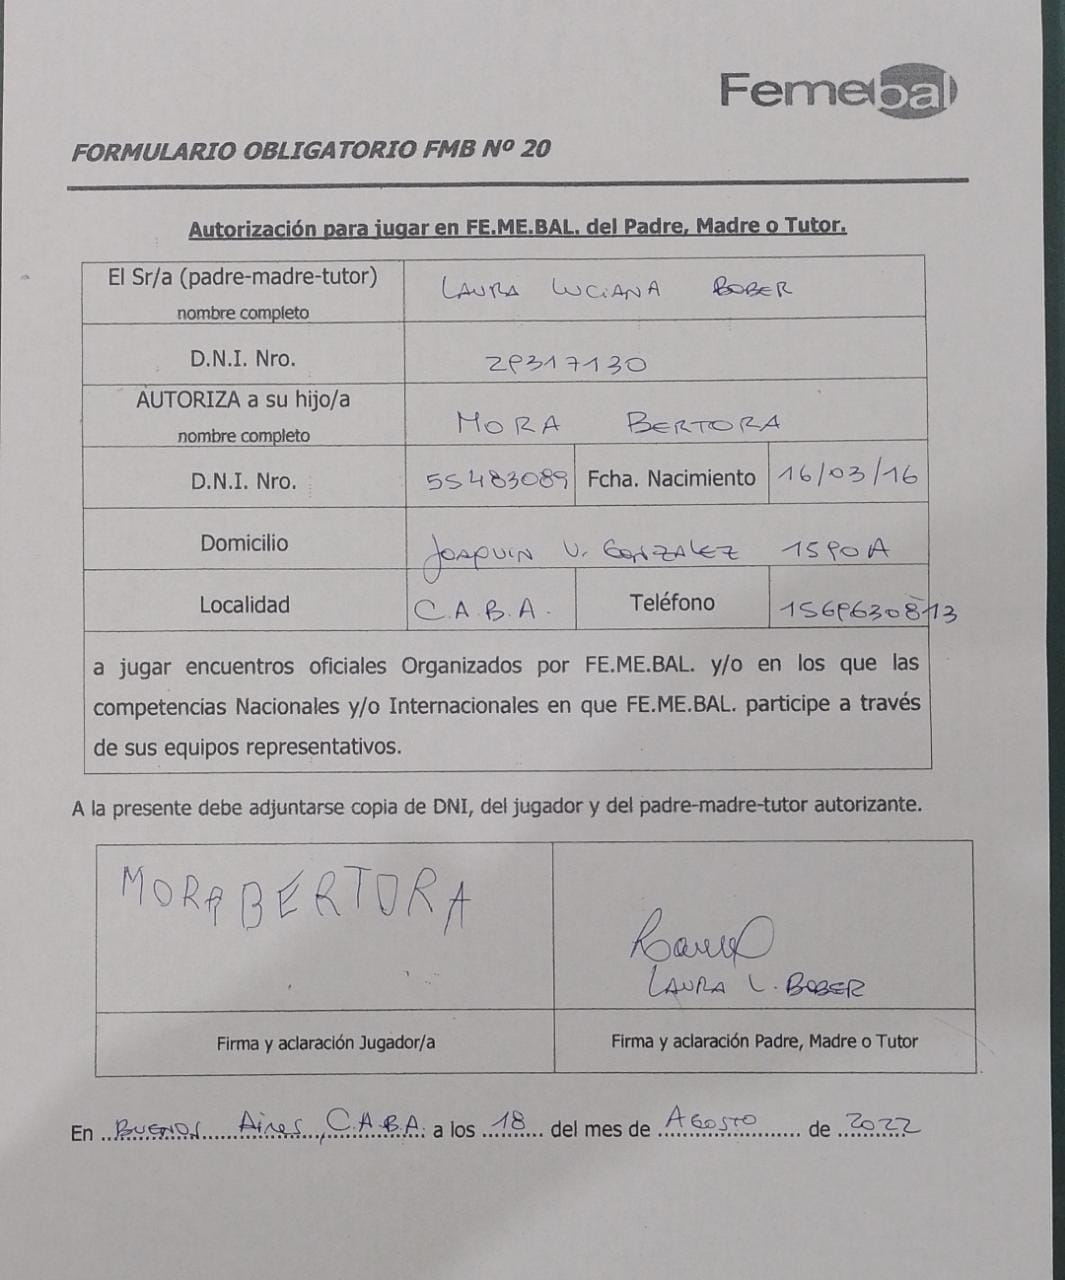 Femebal
FORMULARIO OBLIGATORIO FMB Nº 20
Autorización para jugar en FE.ME.BAL. del Padre, Madre o Tutor.
El Sr/a (padre-madre-tutor)
nombre completo
LAURA LUCIANA BOBER
D.N.I. Nro.
29317130
AUTORIZA a su hijo/a
nombre completo
MORA BERTORA
D.N.I. Nro.
55483089
Fcha. Nacimiento
16/03/16
Domicilio
JOAQUIN V. GONZALEZ 1590 A
Localidad
C.A.B.A.
Teléfono
1569630813
a jugar encuentros oficiales Organizados por FE.ME.BAL. y/o en los que las
competencias Nacionales y/o Internacionales en que FE.ME.BAL. participe a través
de sus equipos representativos.
A la presente debe adjuntarse copia de DNI, del jugador y del padre-madre-tutor autorizante.
MORA BERTORA
LAURA L. BOBER
Firma y aclaración Jugador/a
Firma y aclaración Padre, Madre o Tutor
En BUENOS Aires, C.A.B.A. a los 18 del mes de AGOSTO de 2022